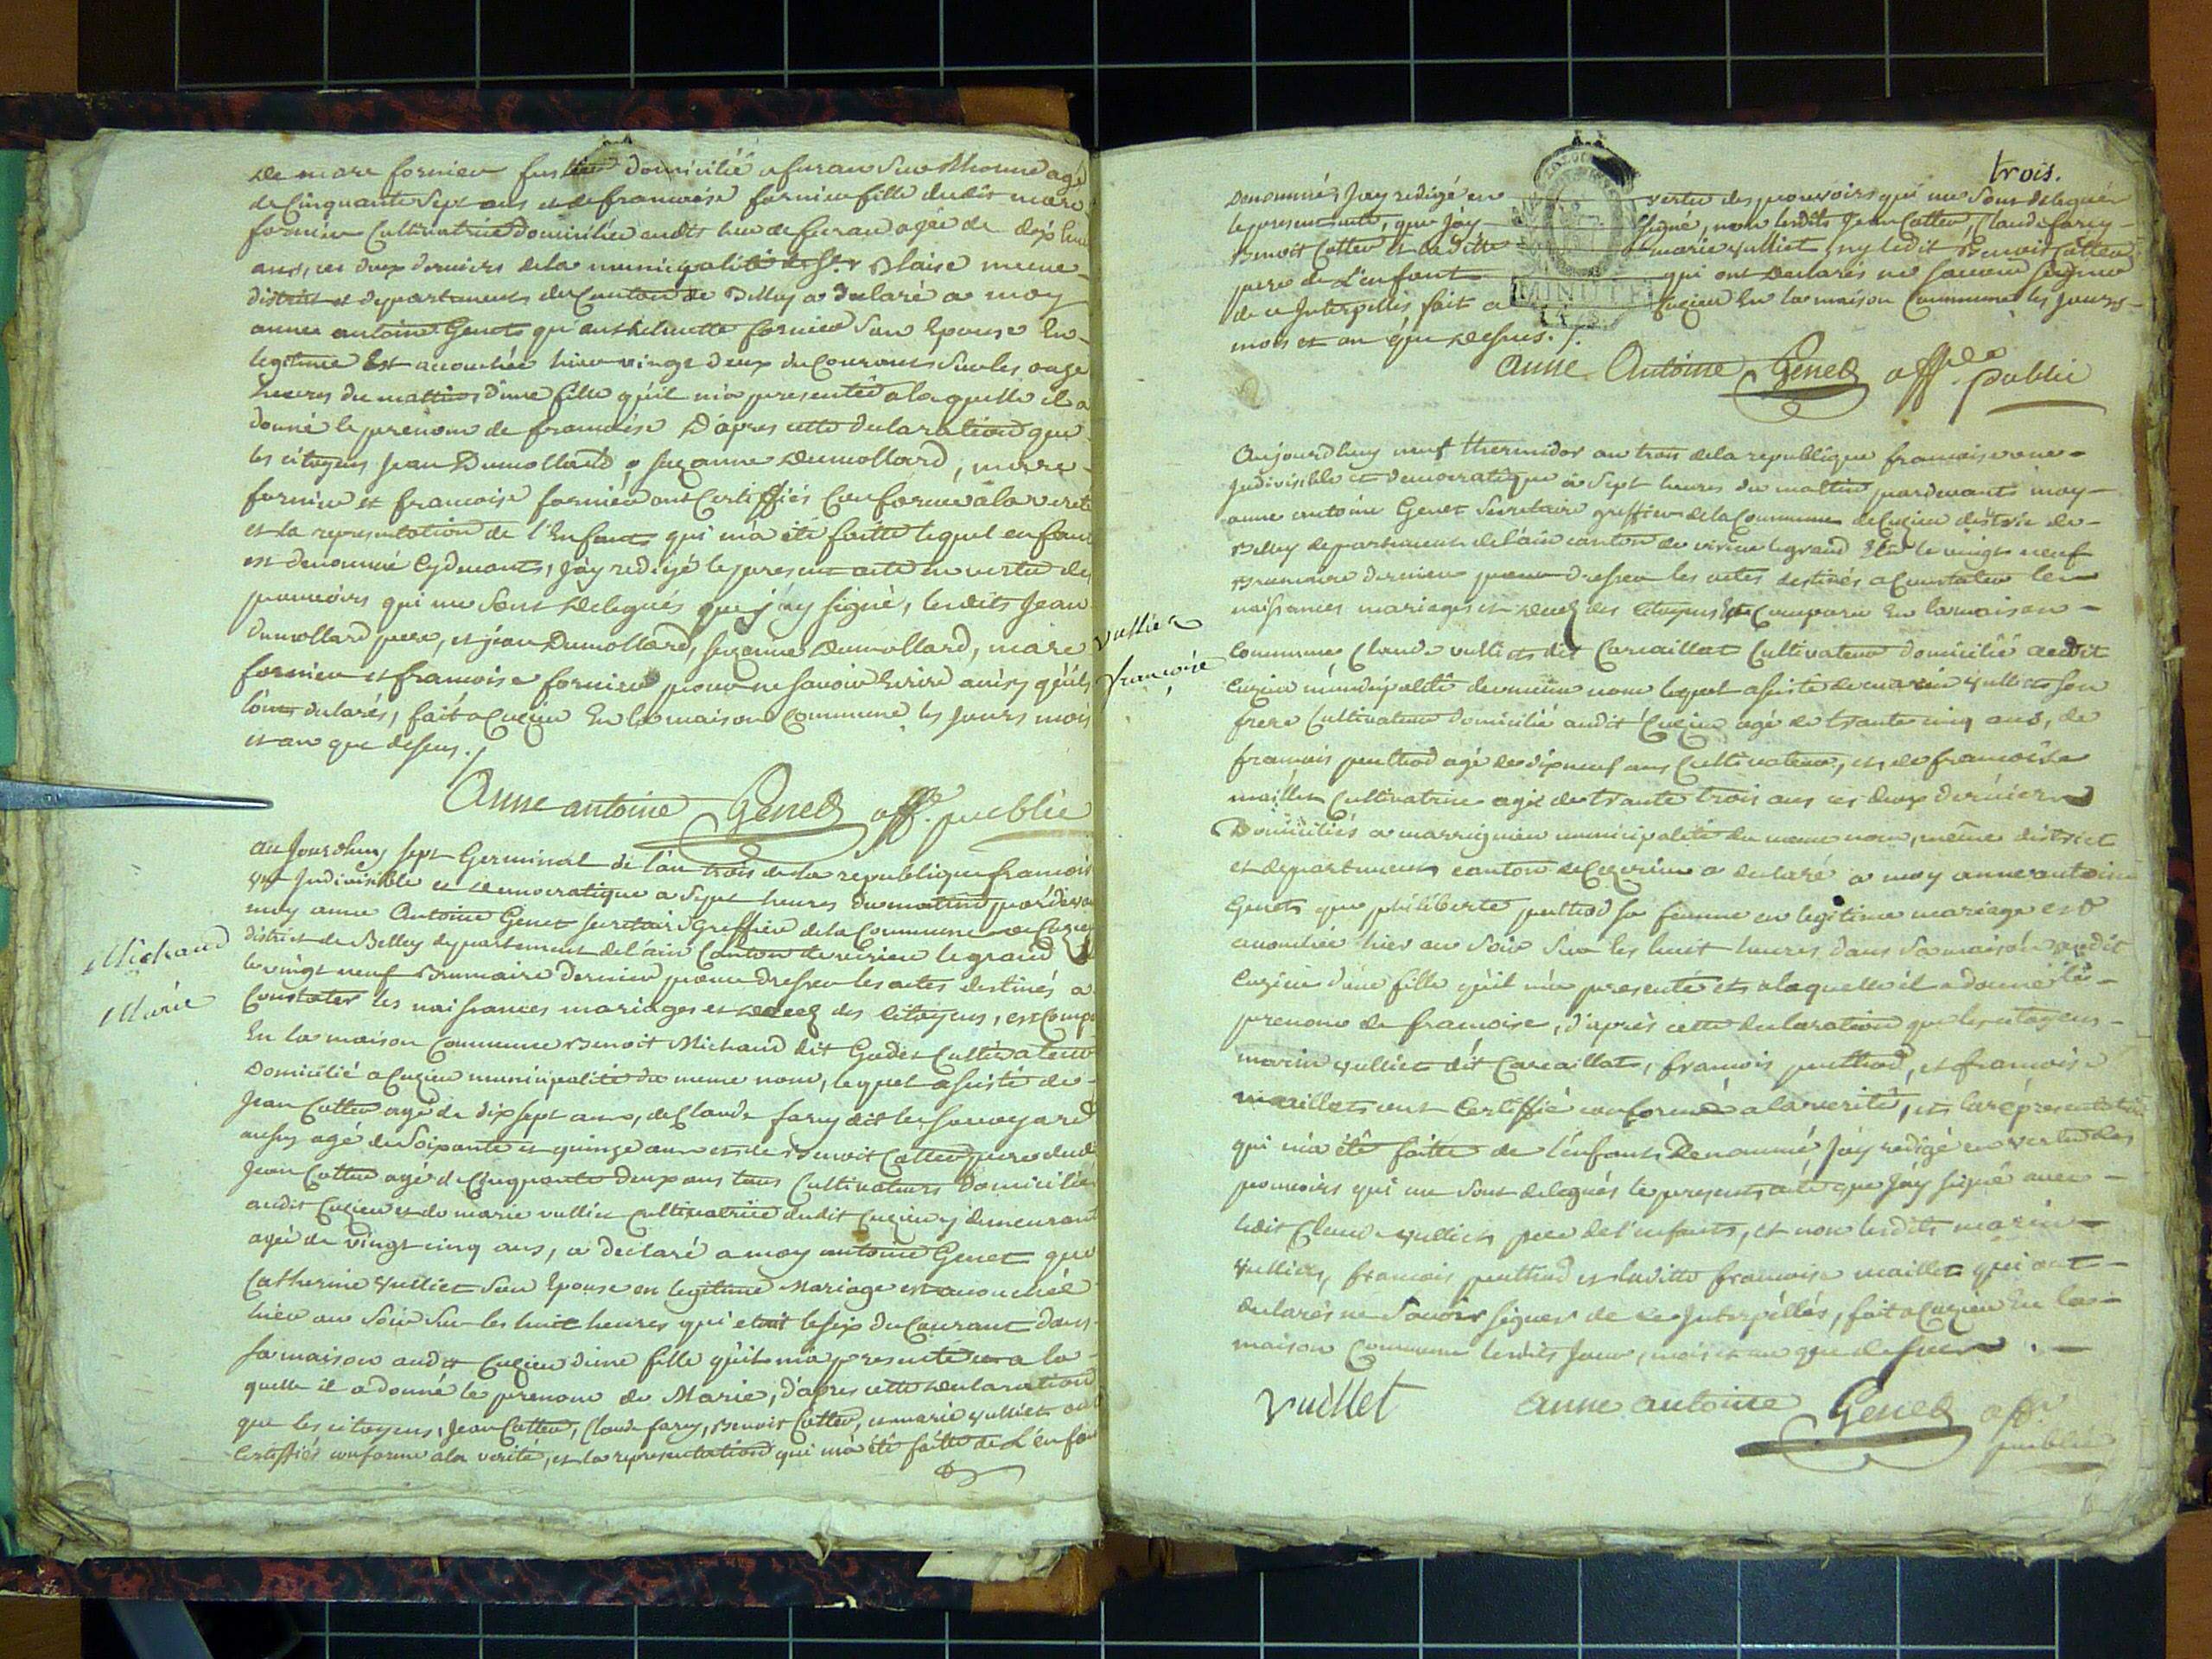 de marc fornier domicilié a furans sur Rhonne agé
de Cinquante Sept ans et de francoise fornier fille dudit marc
fornier Cultivatrice domiciliée audit lieu de furans agée de dix huit
ans, ces deux derniers de la municipalité de St. Blaise meme
district et departement du Canton de Belley a declaré a moy
anne antoine Genet qu' Cornier Son Epouse En
legitime Est accouchée hier vingt deux du Courant Sur les onze
heures du mattin d'une fille qu'il m'a presentée a laquelle il a
donné le prenom de francoise D'apres cette declaration que
les citoyens Jean Dumollard, Suzanne Dumollard, marc
fornier et francoise fornier ont Certiffiés Conforme a la verité
et la representation de l'Enfant qui m'a été faitte lequel enfant
est denommé Cydevant, J'ay redigé le present acte en vertu des
pouvoirs qui me Sont delegués que j'ay signé, lesdits Jean
dumollard pere, et jean Dumollard, Suzanne Dumollard, marc
fornier et francoise fornier pour ne savoir Ecrire ainsy qu'ils
l'ont declarés, fait a Cuzieu En la maison Commune les jours mois
et an que dessus./.
Anne antoine Genet off. publie
Michaud
Marie
au Jourdhuy sept Germinal de l'an trois de la republique francoise
une Indivisible et democratique a Sept heures du mattin pardevant
moy anne Antoine Genet Secretaire Greffier de la Commune de Cuzieu
district de Belley departement de l'ain Canton de virieu le grand Elu
le vingt neuf Brumaire dernier pour dresser les actes destinés a
Constater les naissances mariages et decez des Citoyens, est Comparu
En la maison Commune Benoit Michaud dit Godet Cultivateur
Domicilié a Cuzieu municipalité du meme nom, lequel assisté de
Jean Cotter agé de dix sept ans, de Claude farcy dit le Savoyard
aussy agé de Soixante et quinze ans et de Benoit Cotter pere dudit
Jean Cotter agé de Cinquante deux ans tous Cultivateurs domiciliés
audit Cuzieu et de marie vulliet cultivatrice dudit Cuzieu y demeurant
agée de vingt cinq ans, a declaré a moy antoine Genet que
Catherine Vulliet Son Epouse en legitime Mariage est accouchée
hier au Soir Sur les huit heures qui etoit le six du Courant dans
sa maison audit Cuzieu d'une fille qu'il m'a presenté et a la
quelle il a donné le prenom de Marie, d'apres cette declaration
que les citoyens, Jean Cotter, Claude farcy, Benoit Cotter, et marie Vulliet ont
Certiffiés conforme a la verité, et la representation qui m'a été faitte de L'enfant
trois.
Denommé, J'ay redigé en vertu des pouvoirs qui me Sont delegués
le present acte, que J'ay Signé, non lesdits Jean Cotter, Claude farcy
Benoit Cotter et la ditte marie vulliet, ny ledit Benoit Cotter
pere de L'enfant qui ont declarés ne savoir Signer
de ce Interpellés fait a Cuzieu En la maison Commune les jours
mois et an que dessus./.
MINUTE
Anne Antoine Genet off. public
Vulliet
francoise
Aujourdhuy neuf thermidor an trois de la republique francoise une
Indivisible et democratique a Sept heures du mattin pardevant moy
anne antoine Genet Secretaire greffier de la Commune de Cuzieu district de
Belley departement de l'ain canton de virieu le grand Elu le vingt neuf
Brumaire dernier pour dresser les actes destinés a Constater les
naissances mariages et decez des Citoyens Est Comparu En la maison
Commune Claude vulliet dit Carcaillat Cultivateur domicilié audit
Cuzieu municipalité du meme nom lequel assisté de marin vulliet son
frere Cultivateur domicilié audit Cuzieu agé de trante cinq ans, de
francois peuthod agé de dix neuf ans Cultivateur, et de francoise
maillet Cultivatrice agée de trante trois ans ces deux derniers
Domiciliés a marrignieu municipalité du meme nom, même district
et departement canton de Ceyzerieu a declaré a moy anne antoine
Genet que philiberte peuthod sa femme en legitime mariage est
accouchée hier au Soir Sur les huit heures dans Sa maison audit
Cuzieu d'une fille qu'il m'a presenté et a laquelle il a donné le
prenom de francoise, d'après cette declaration que les citoyens
marin vulliet dit Carcaillat, francois peuthod, et francoise
maillet ont Certiffié conforme a la verité, et la representation
qui m'a été faitte de l'enfant Denommé, J'ay redigé en vertu des
pouvoirs qui me Sont delegués le present acte que J'ay signé avec
ledit Claude vulliet pere de l'enfant, et non lesdits marin
Vulliet, francois peuthod et laditte francoise maillet qui ont
declarés ne Savoir signer de ce Interpellés, fait a Cuzieu En la
maison Commune lesdits Jour, mois et an que dessus.
Vuillet Anne antoine Genet off. publie